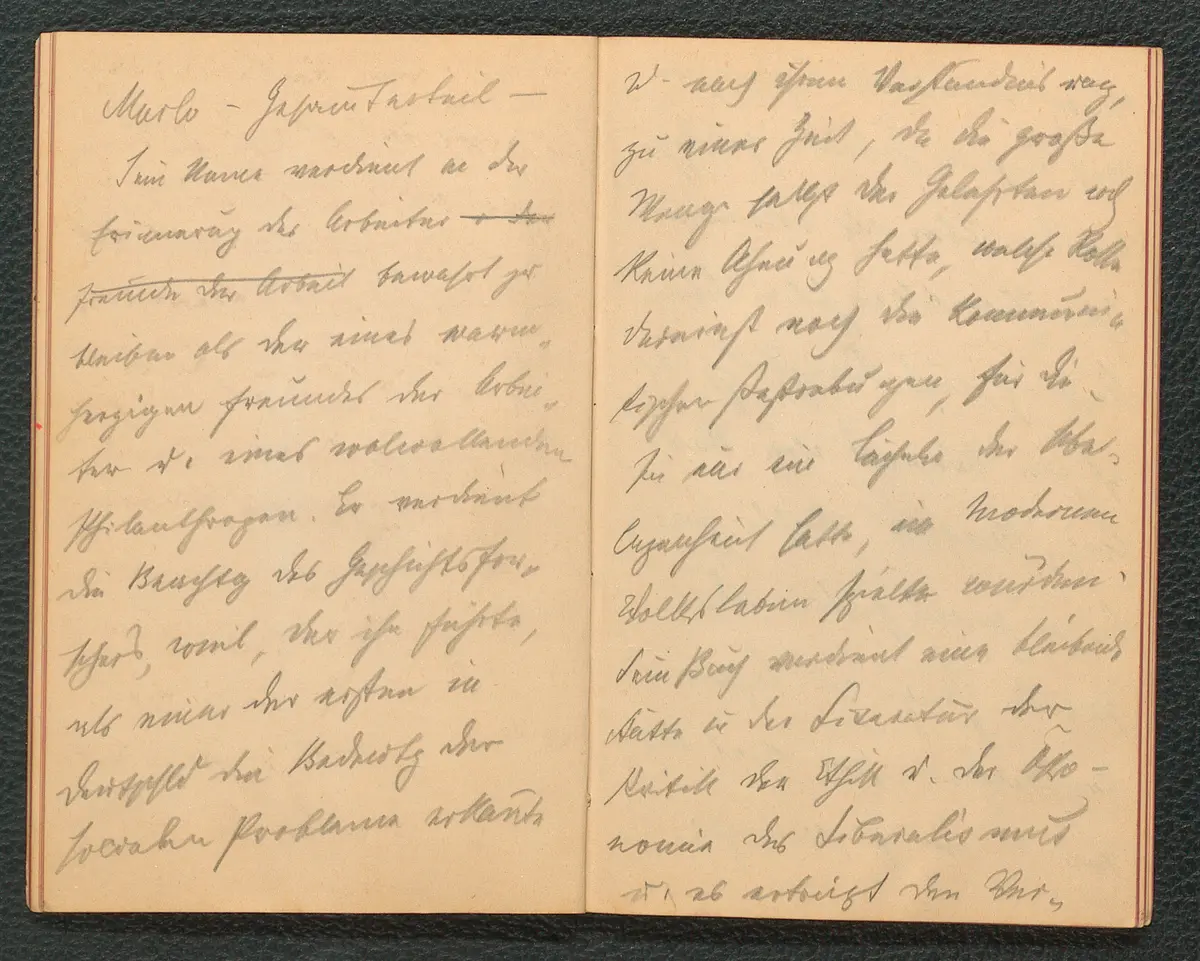 Marlo – Gesamturteil –
Sein Name verdient in der
Erinnerug der Arbeiter u. der
Freunde der Arbeit bewahrt zu
bleiben als der eines warm-
herzigen Freundes der Arbei-
ter u. eines wolwollenden
Philanthropen. Er verdient
die Beachtg des Geschichtsfor-
schers, weil, der ihn führte,
als einer der ersten in
Deutschld die Bedeutg der
socialen Probleme erkannte
u. nach ihrem Verständnis rang,
zu einer Zeit, da die große
Menge selbst der Gelehrten noch
keine Ahnung hatte, welche Rolle
dereinst noch die kommunis-
tischen Bestrebungen, für die
sie nur ein Lächeln der Über-
legenheit hatte, im modernen
Volksleben spielen würden.
Sein Buch verdient eine bleibende
Stätte in der Literatur der
Kritik der Ethik u. der Öko-
nomie des Liberalismus
u. es erträgt den Ver-